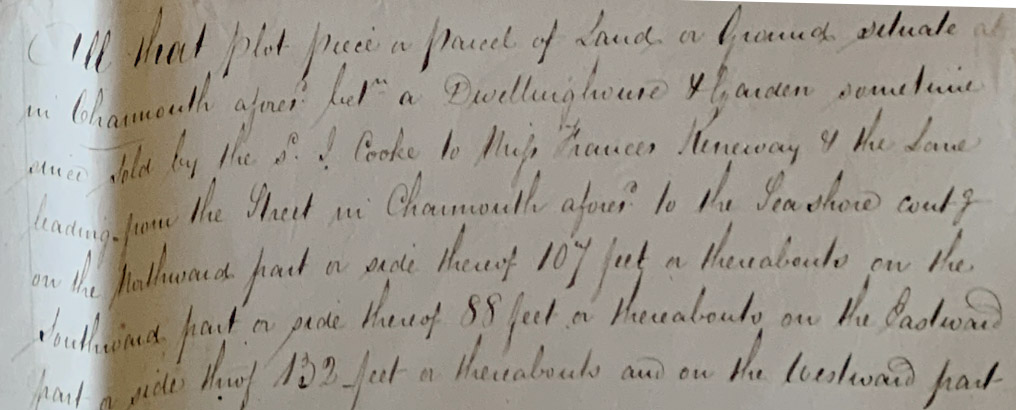 All that plot piece or parcel of Land or Ground situate at
in Charmouth afores.d bet.n a Dwellinghouse & Garden sometime
since sold by the s.d J. Cooke to Miss Frances Keneway & the Lane
leading from the Street in Charmouth afores.d to the Seashore cont.g
on the Northward part or side thereof 107 feet or thereabouts on the
Southward part or side thereof 88 feet or thereabouts on the Eastward
part or side throf 132 feet or thereabouts and on the Westward part